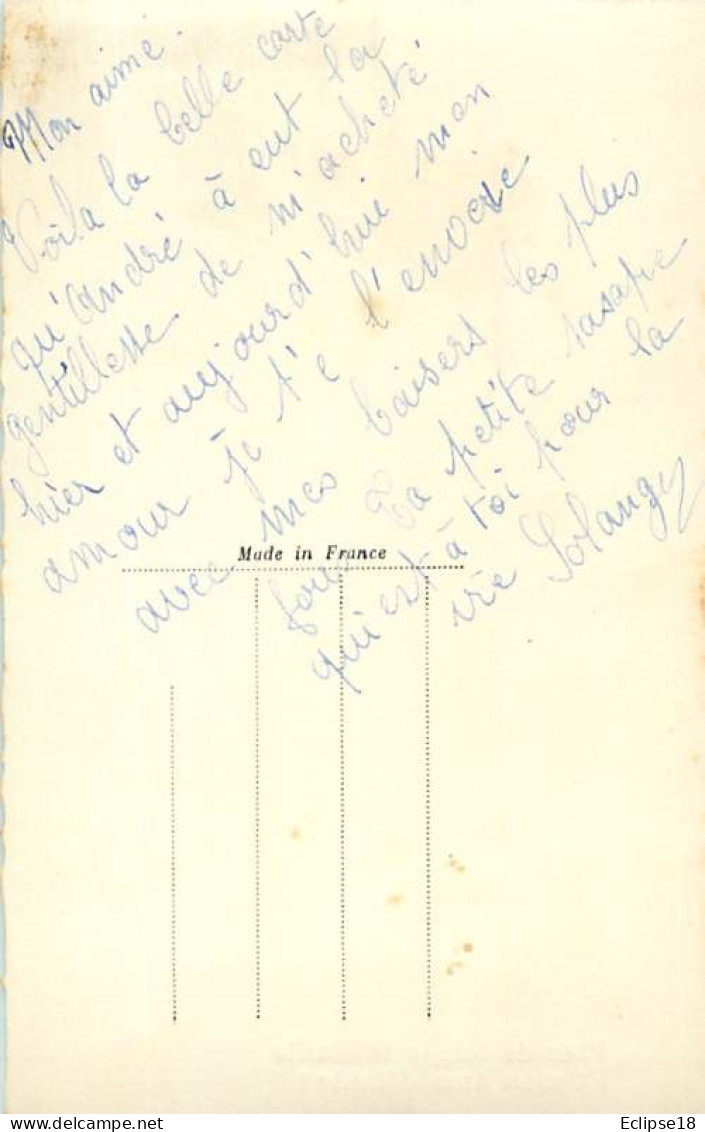 Mon aimé.
Voila la belle carte
qu'andré à eut la
gentillesse de m'acheté
hier et aujourd'hui mon
amour je t'e l'envoie
avec mes baisers les plus
fous Ta petite
qui est à toi pour la
vie Solange
Made in France
Eclipse18